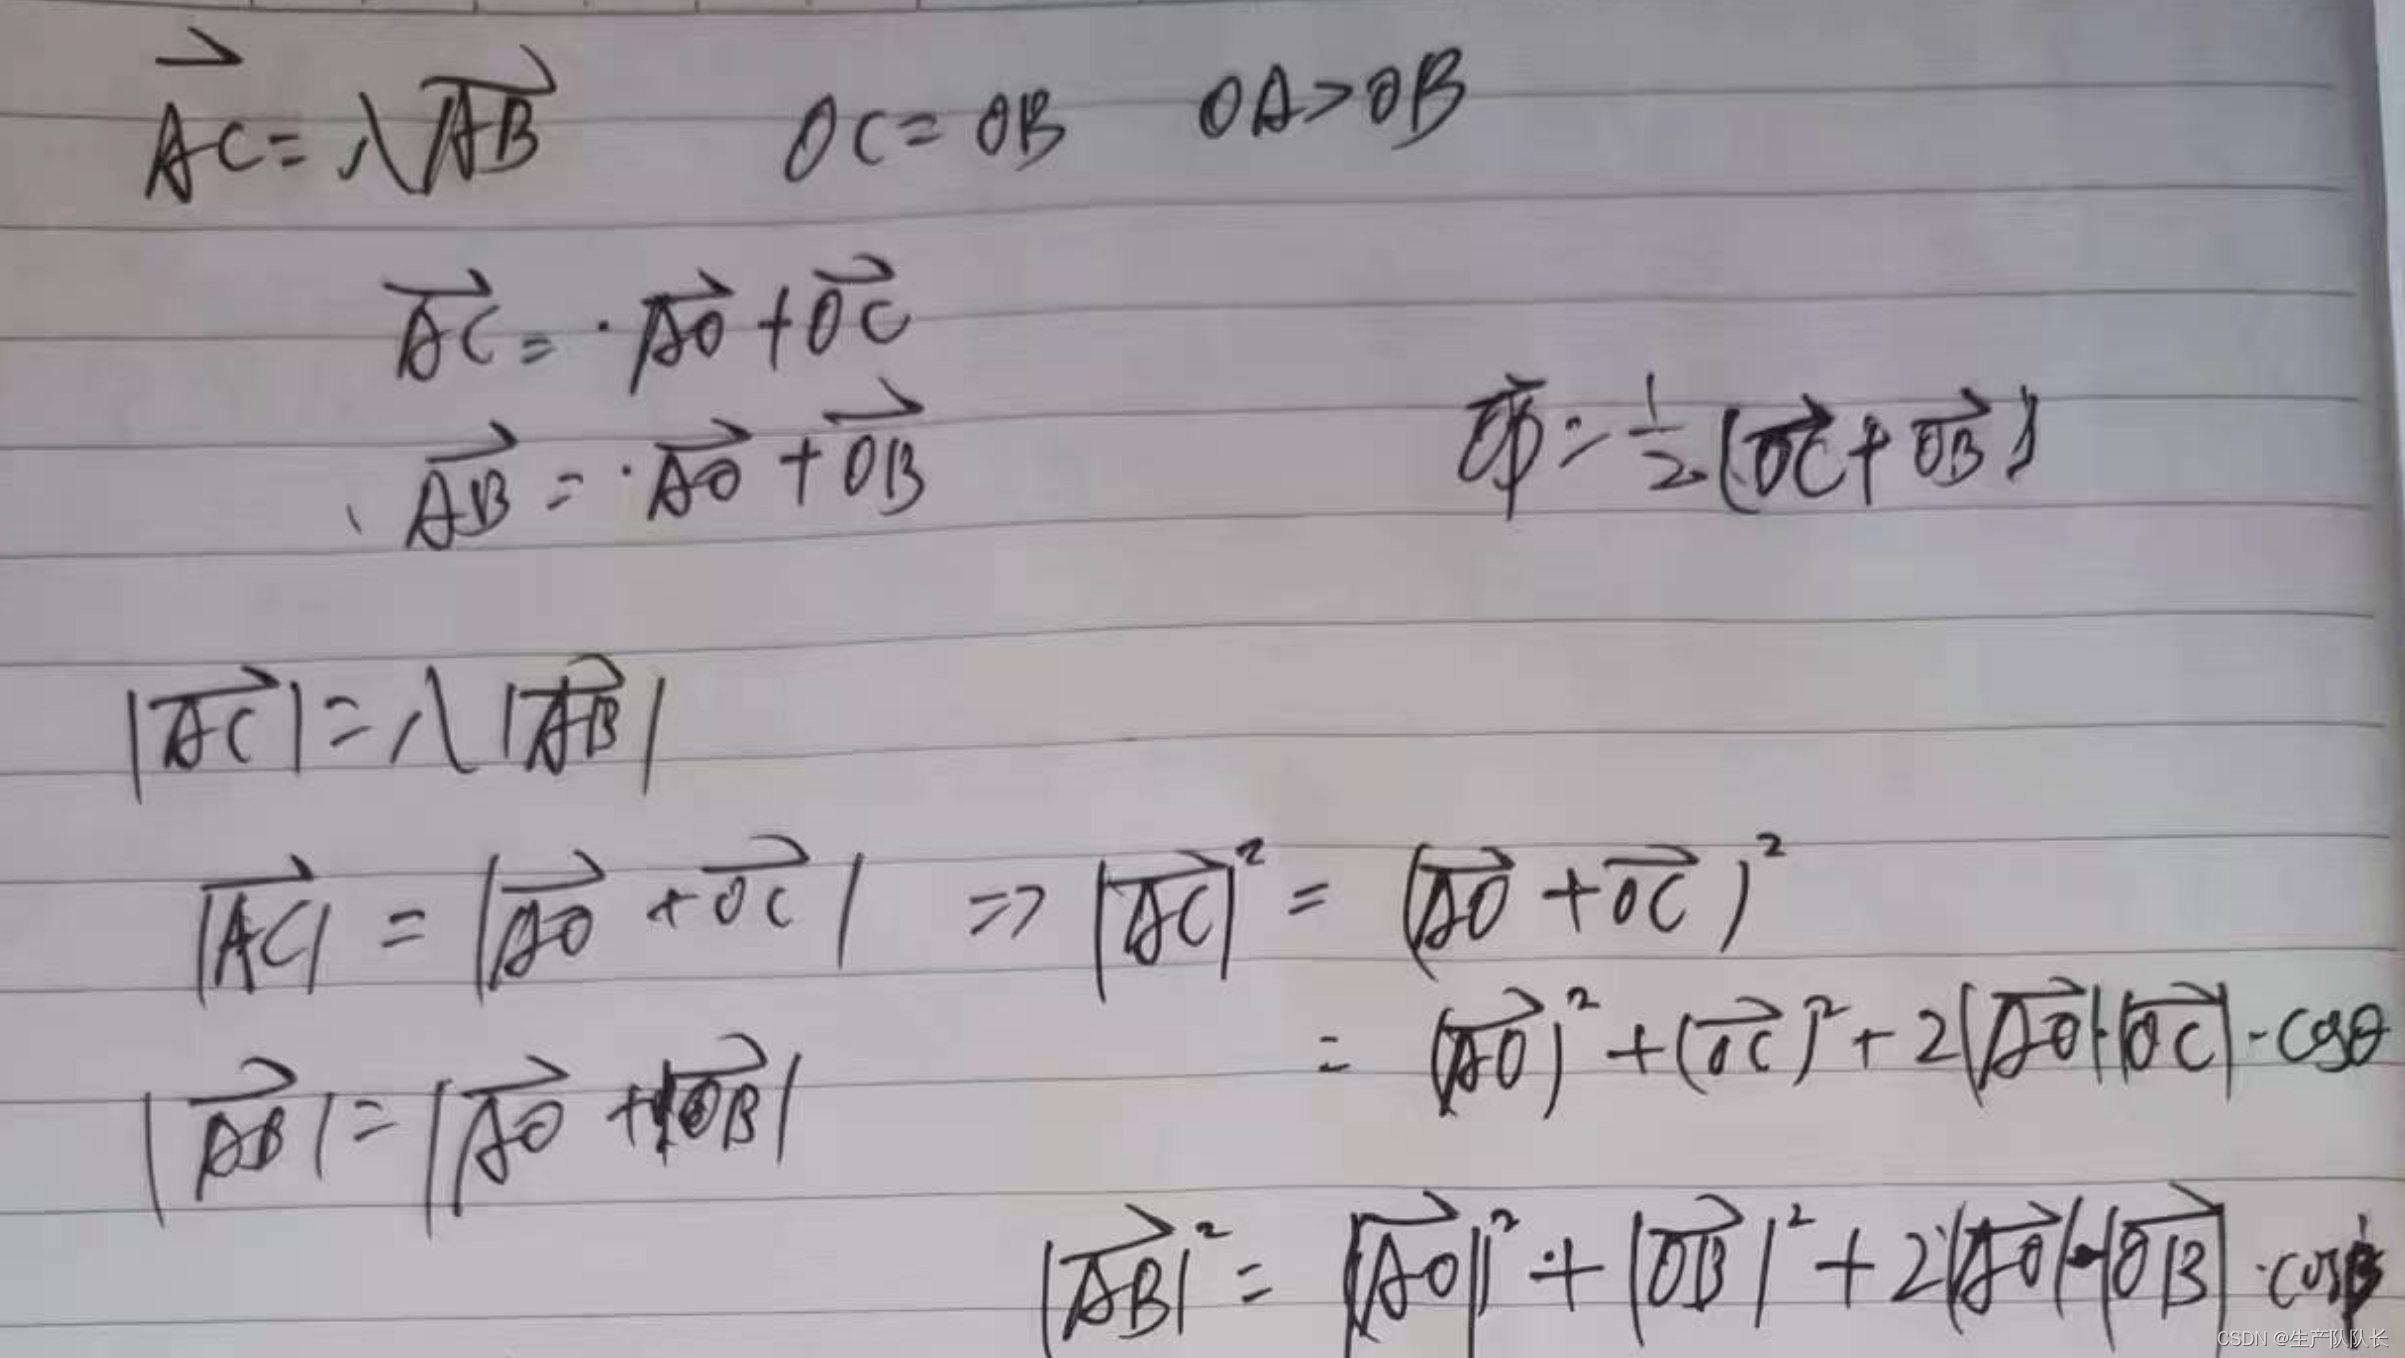 $\overrightarrow{AC} = \lambda \overrightarrow{AB}$  $OC = OB$  $OA > OB$
$\overrightarrow{AC} = \cdot \overrightarrow{AO} + \overrightarrow{OC}$
$\overrightarrow{AB} = \cdot \overrightarrow{AO} + \overrightarrow{OB}$  $\overrightarrow{OP} = \frac{1}{2} (\overrightarrow{OC} + \overrightarrow{OB})$
$|\overrightarrow{AC}| = \lambda |\overrightarrow{AB}|$
$|\overrightarrow{AC}| = |\overrightarrow{AO} + \overrightarrow{OC}| \Rightarrow |\overrightarrow{AC}|^2 = (\overrightarrow{AO} + \overrightarrow{OC})^2$
$= (\overrightarrow{AO})^2 + (\overrightarrow{OC})^2 + 2|\overrightarrow{AO}| \cdot |\overrightarrow{OC}| \cdot \cos\theta$
$|\overrightarrow{AB}| = |\overrightarrow{AO} + \overrightarrow{OB}|$
$|\overrightarrow{AB}|^2 = |\overrightarrow{AO}|^2 + |\overrightarrow{OB}|^2 + 2|\overrightarrow{AO}| \cdot |\overrightarrow{OB}| \cdot \cos\beta$
CSDN @生产队队长